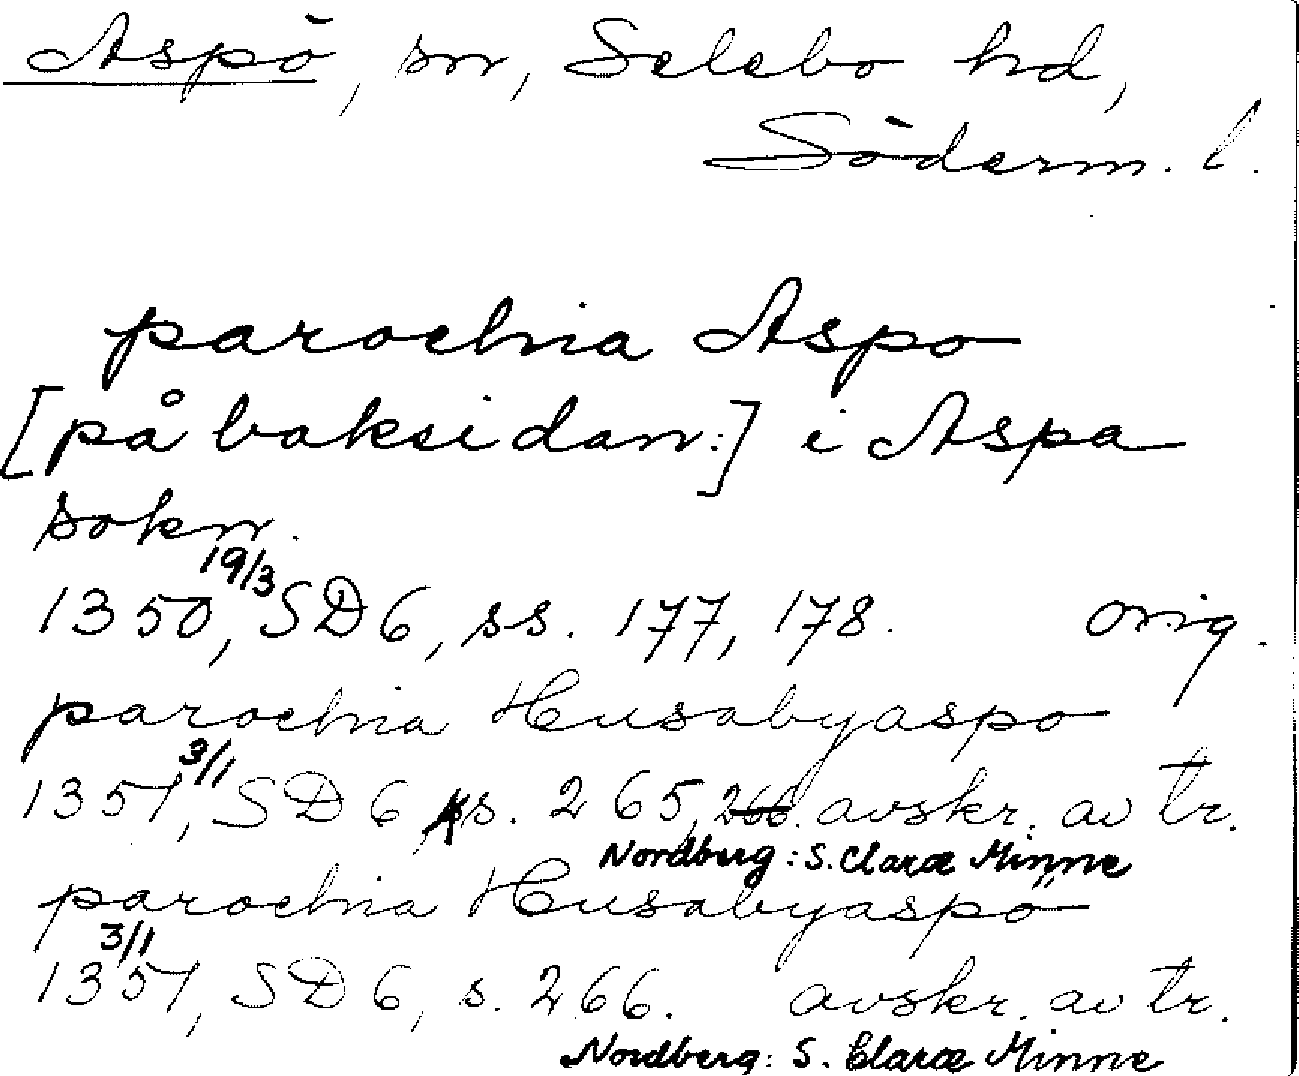 Aspö, sn, Selebo hd,
Söderm. l.
parochia Aspo
[på baksidan:] i Aspa
sokn.
19/3
1350, SD 6, ss. 177, 178. orig.
parochia Husabyaspo
3/1
1351, SD 6 s. 265, 266. avskr. av tr.
Nordberg: S. Claræ Minne
parochia Husabyaspö
3/1
1351, SD 6, s. 266. avskr. av tr.
Nordberg: S. Claræ Minne